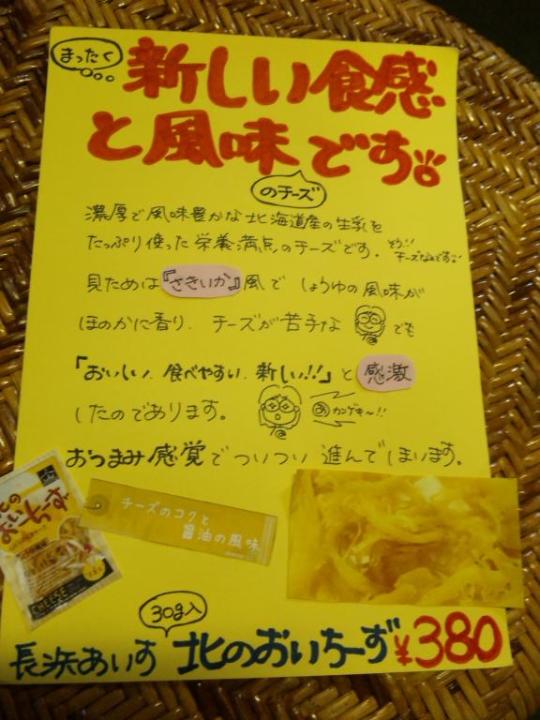 まったく
新しい食感
と風味です
のチーズ
濃厚で風味豊かな北海道産の生乳を
たっぷり使った栄養満点のチーズです。
見ためは『さきいか』風で しょうゆの風味が
ほのかに香り、チーズが苦手な でも
「おいしい、食べやすい、新しい!!」と 感激
したのであります。
カンゲキ〜!!
おつまみ感覚でついつい進んでしまいます。
おいちーず
CHEESE
チーズのコクと
醤油の風味
30g入
長浜あいす 北のおいちーず ¥380